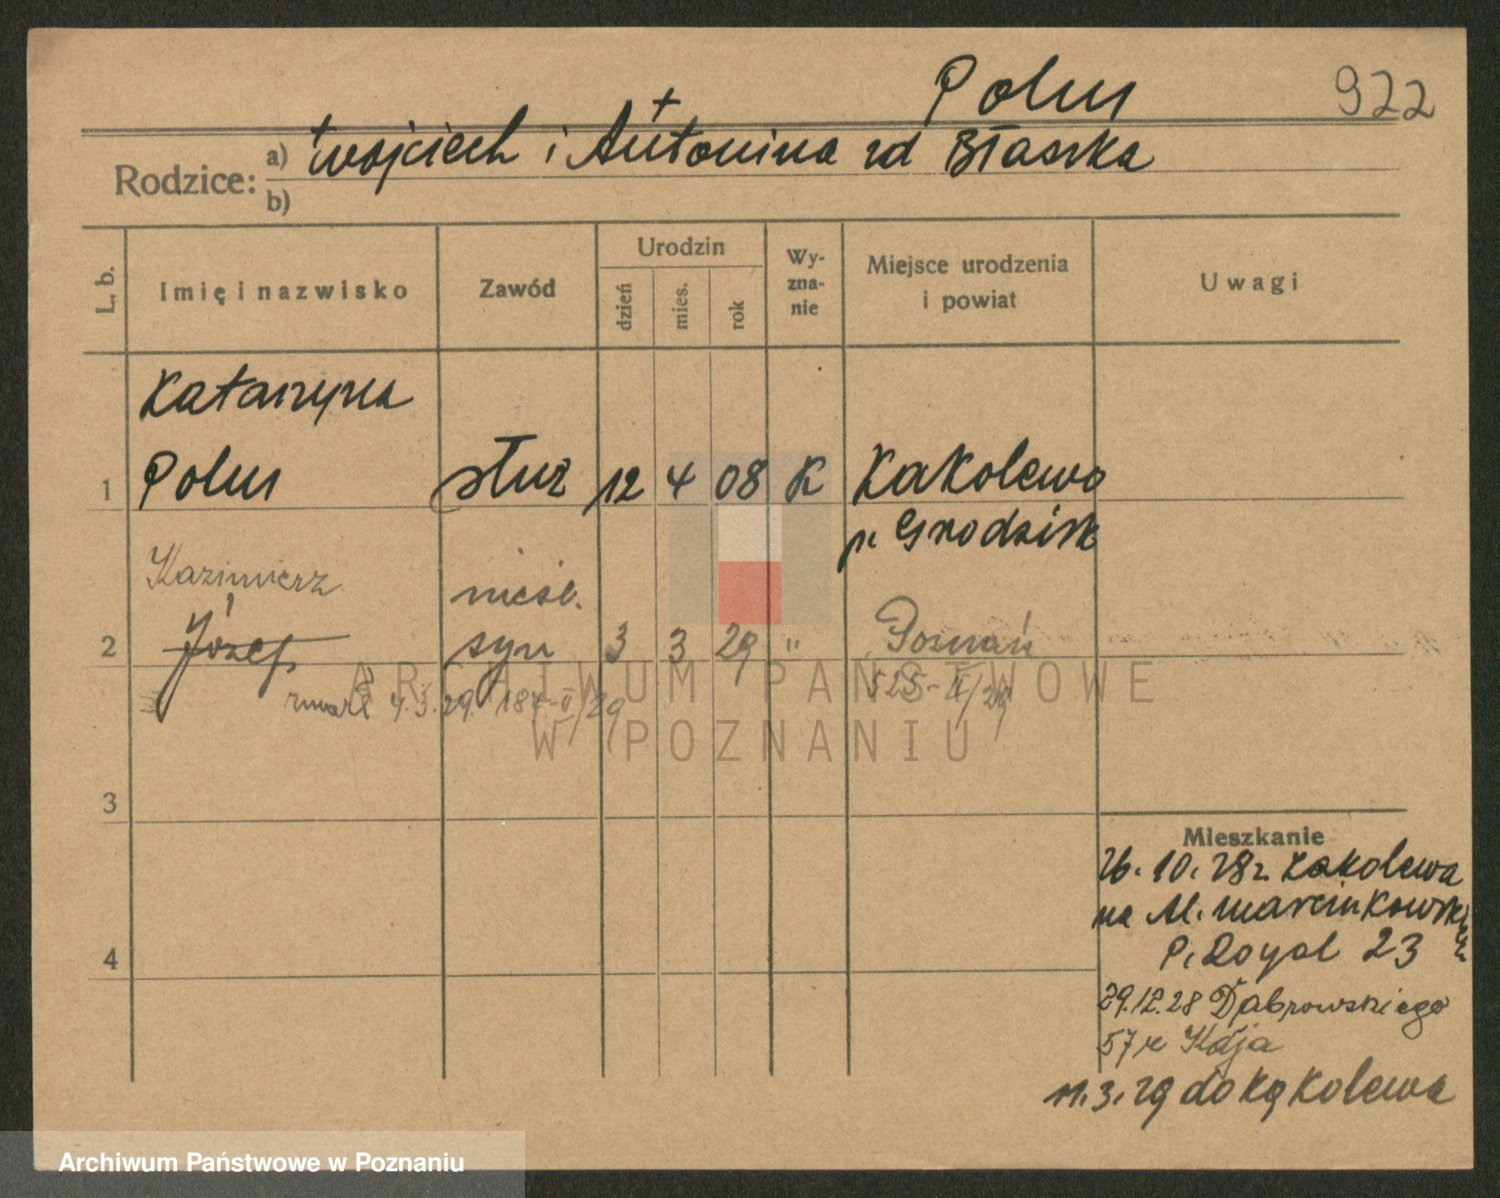 Polus 922
Rodzice: a) Wojciech i Antonina rd Błaszka
b)
L. b. Imię i nazwisko Zawód Urodzin dzień mies. rok Wy-zna-nie Miejsce urodzenia i powiat Uwagi
Katarzyna
1 Polus służ 12 4 08 K Kąkolewo
p. Grodzisk
Kazimierz nieśl.
2 Józef syn 3 3 29 " Poznań
zmarł 4.3.29. 187-II/29 525-II/29
3
Mieszkanie
26.10.28 z Kąkolewa
na Al. Marcinkowsk
4 P. Royal 23
29.12.28 Dąbrowskiego
57 Kaja
11.3.29 do Kąkolewa
ARCHIWUM PAŃSTWOWE
W POZNANIU
Archiwum Państwowe w Poznaniu